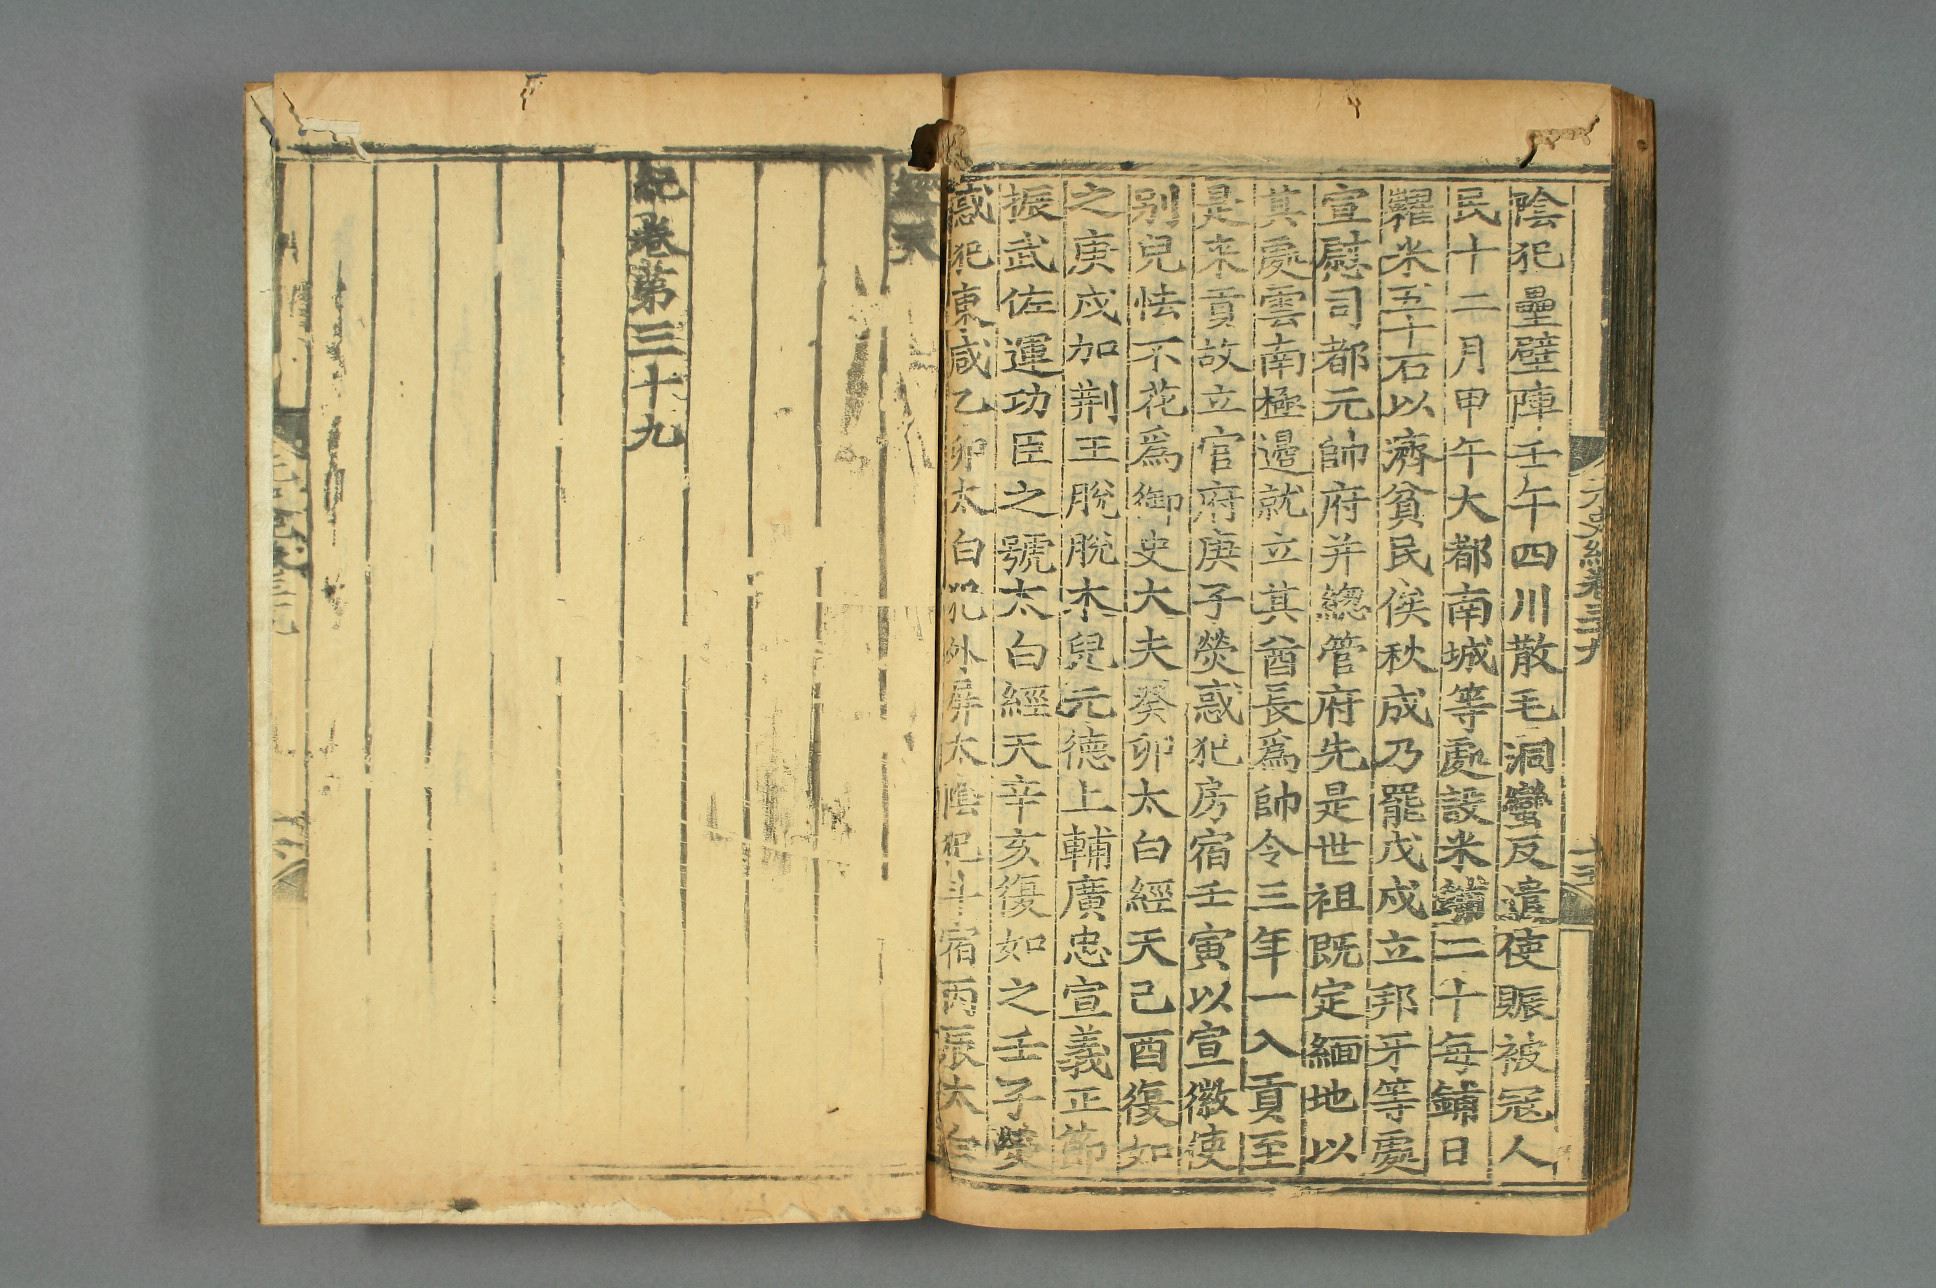 元史紀卷三十九
十五
陰犯壘壁陣壬午四川散毛洞蠻反遣使賑被寇人
民十二月甲午大都南城等處設米鋪二十每鋪日
糶米五十石以濟貧民俟秋成乃罷戊戌立邦牙等處
宣慰司都元帥府并總管府先是世祖既定緬地以
其處雲南極邊就立其酋長爲帥令三年一入貢至
是来貢故立官府庚子熒惑犯房宿壬寅以宣徽使
别兒怯不花爲御史大夫癸卯太白經天己酉復如
之庚戌加荆王脫脫木兒元德上輔廣忠宣義正節
振武佐運功臣之號太白經天辛亥復如之壬子熒
惑犯東咸乙卯太白犯外屏太陰犯斗宿丙辰太白
經天
紀卷第三十九